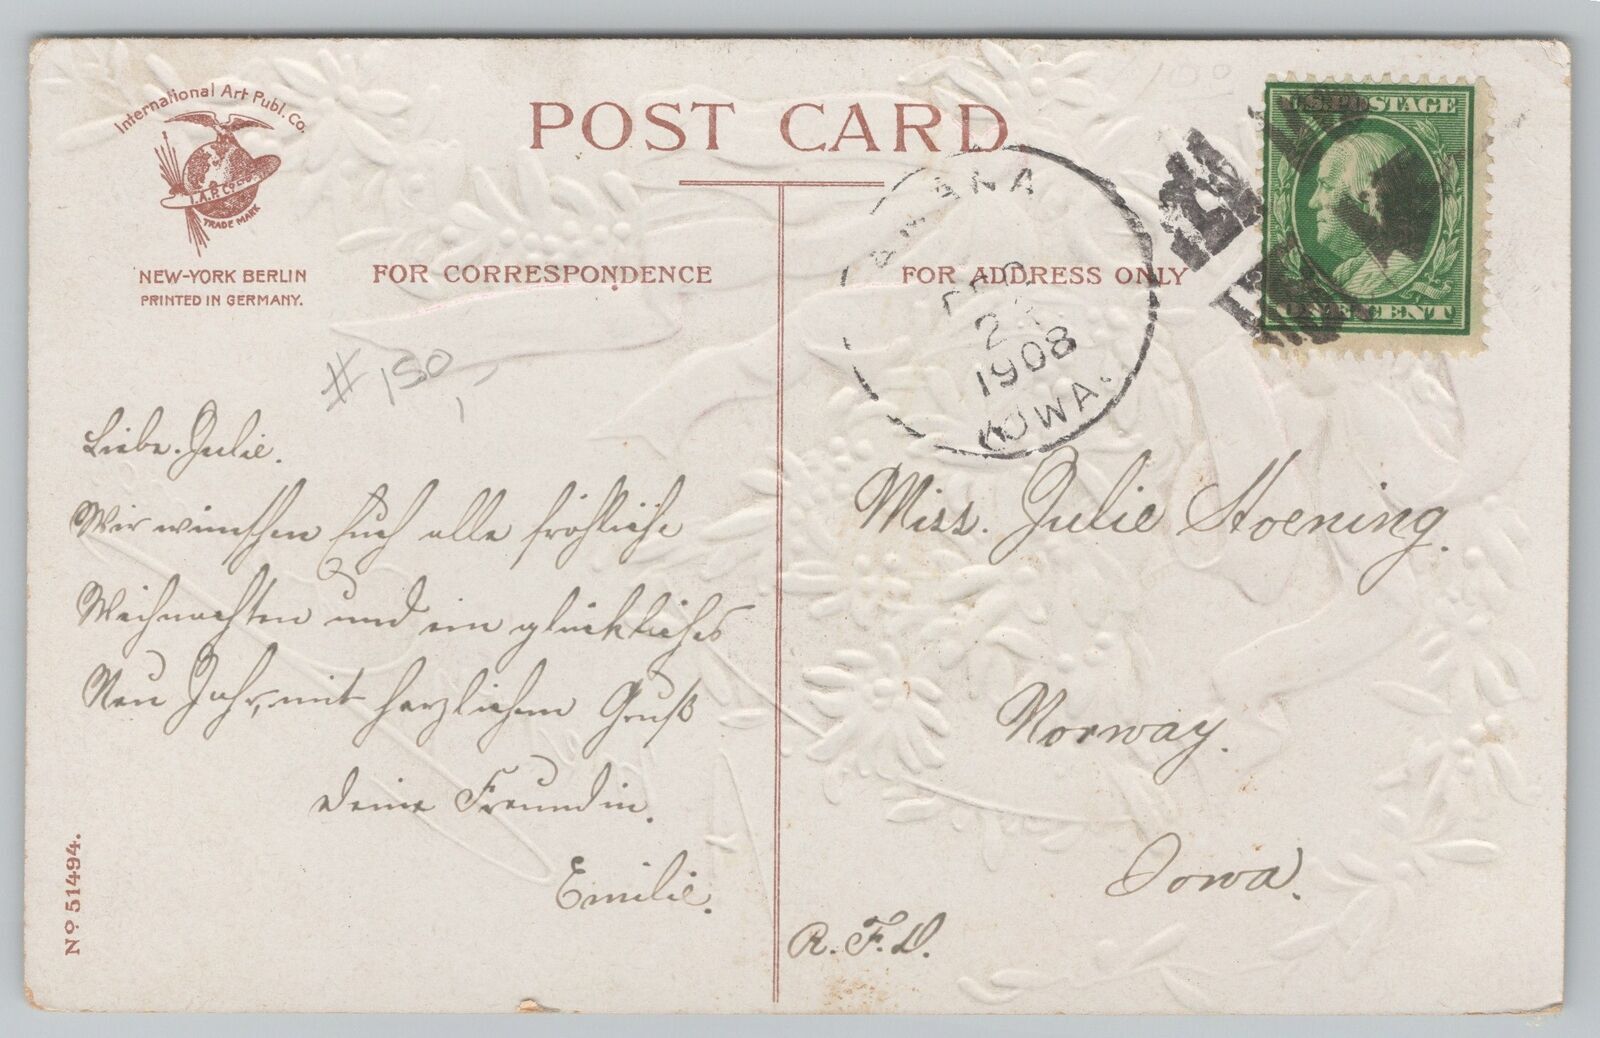 International Art Publ. Co.
I.A.P. Co.
TRADE MARK
NEW-YORK BERLIN
PRINTED IN GERMANY.
POST CARD
FOR CORRESPONDENCE
FOR ADDRESS ONLY
U.S. POSTAGE
ONE CENT
2
1908
IOWA.
# 150,-
100
Liebe Julie.
Wir wünschen Euch alle fröhliche
Weihnachten und ein glückliches
Neu Jahr, mit herzlichem Gruß
Deine Freundin.
Emilie.
Miss. Julie Hoening.
Norway.
Iowa.
R. F. D.
No 51494.